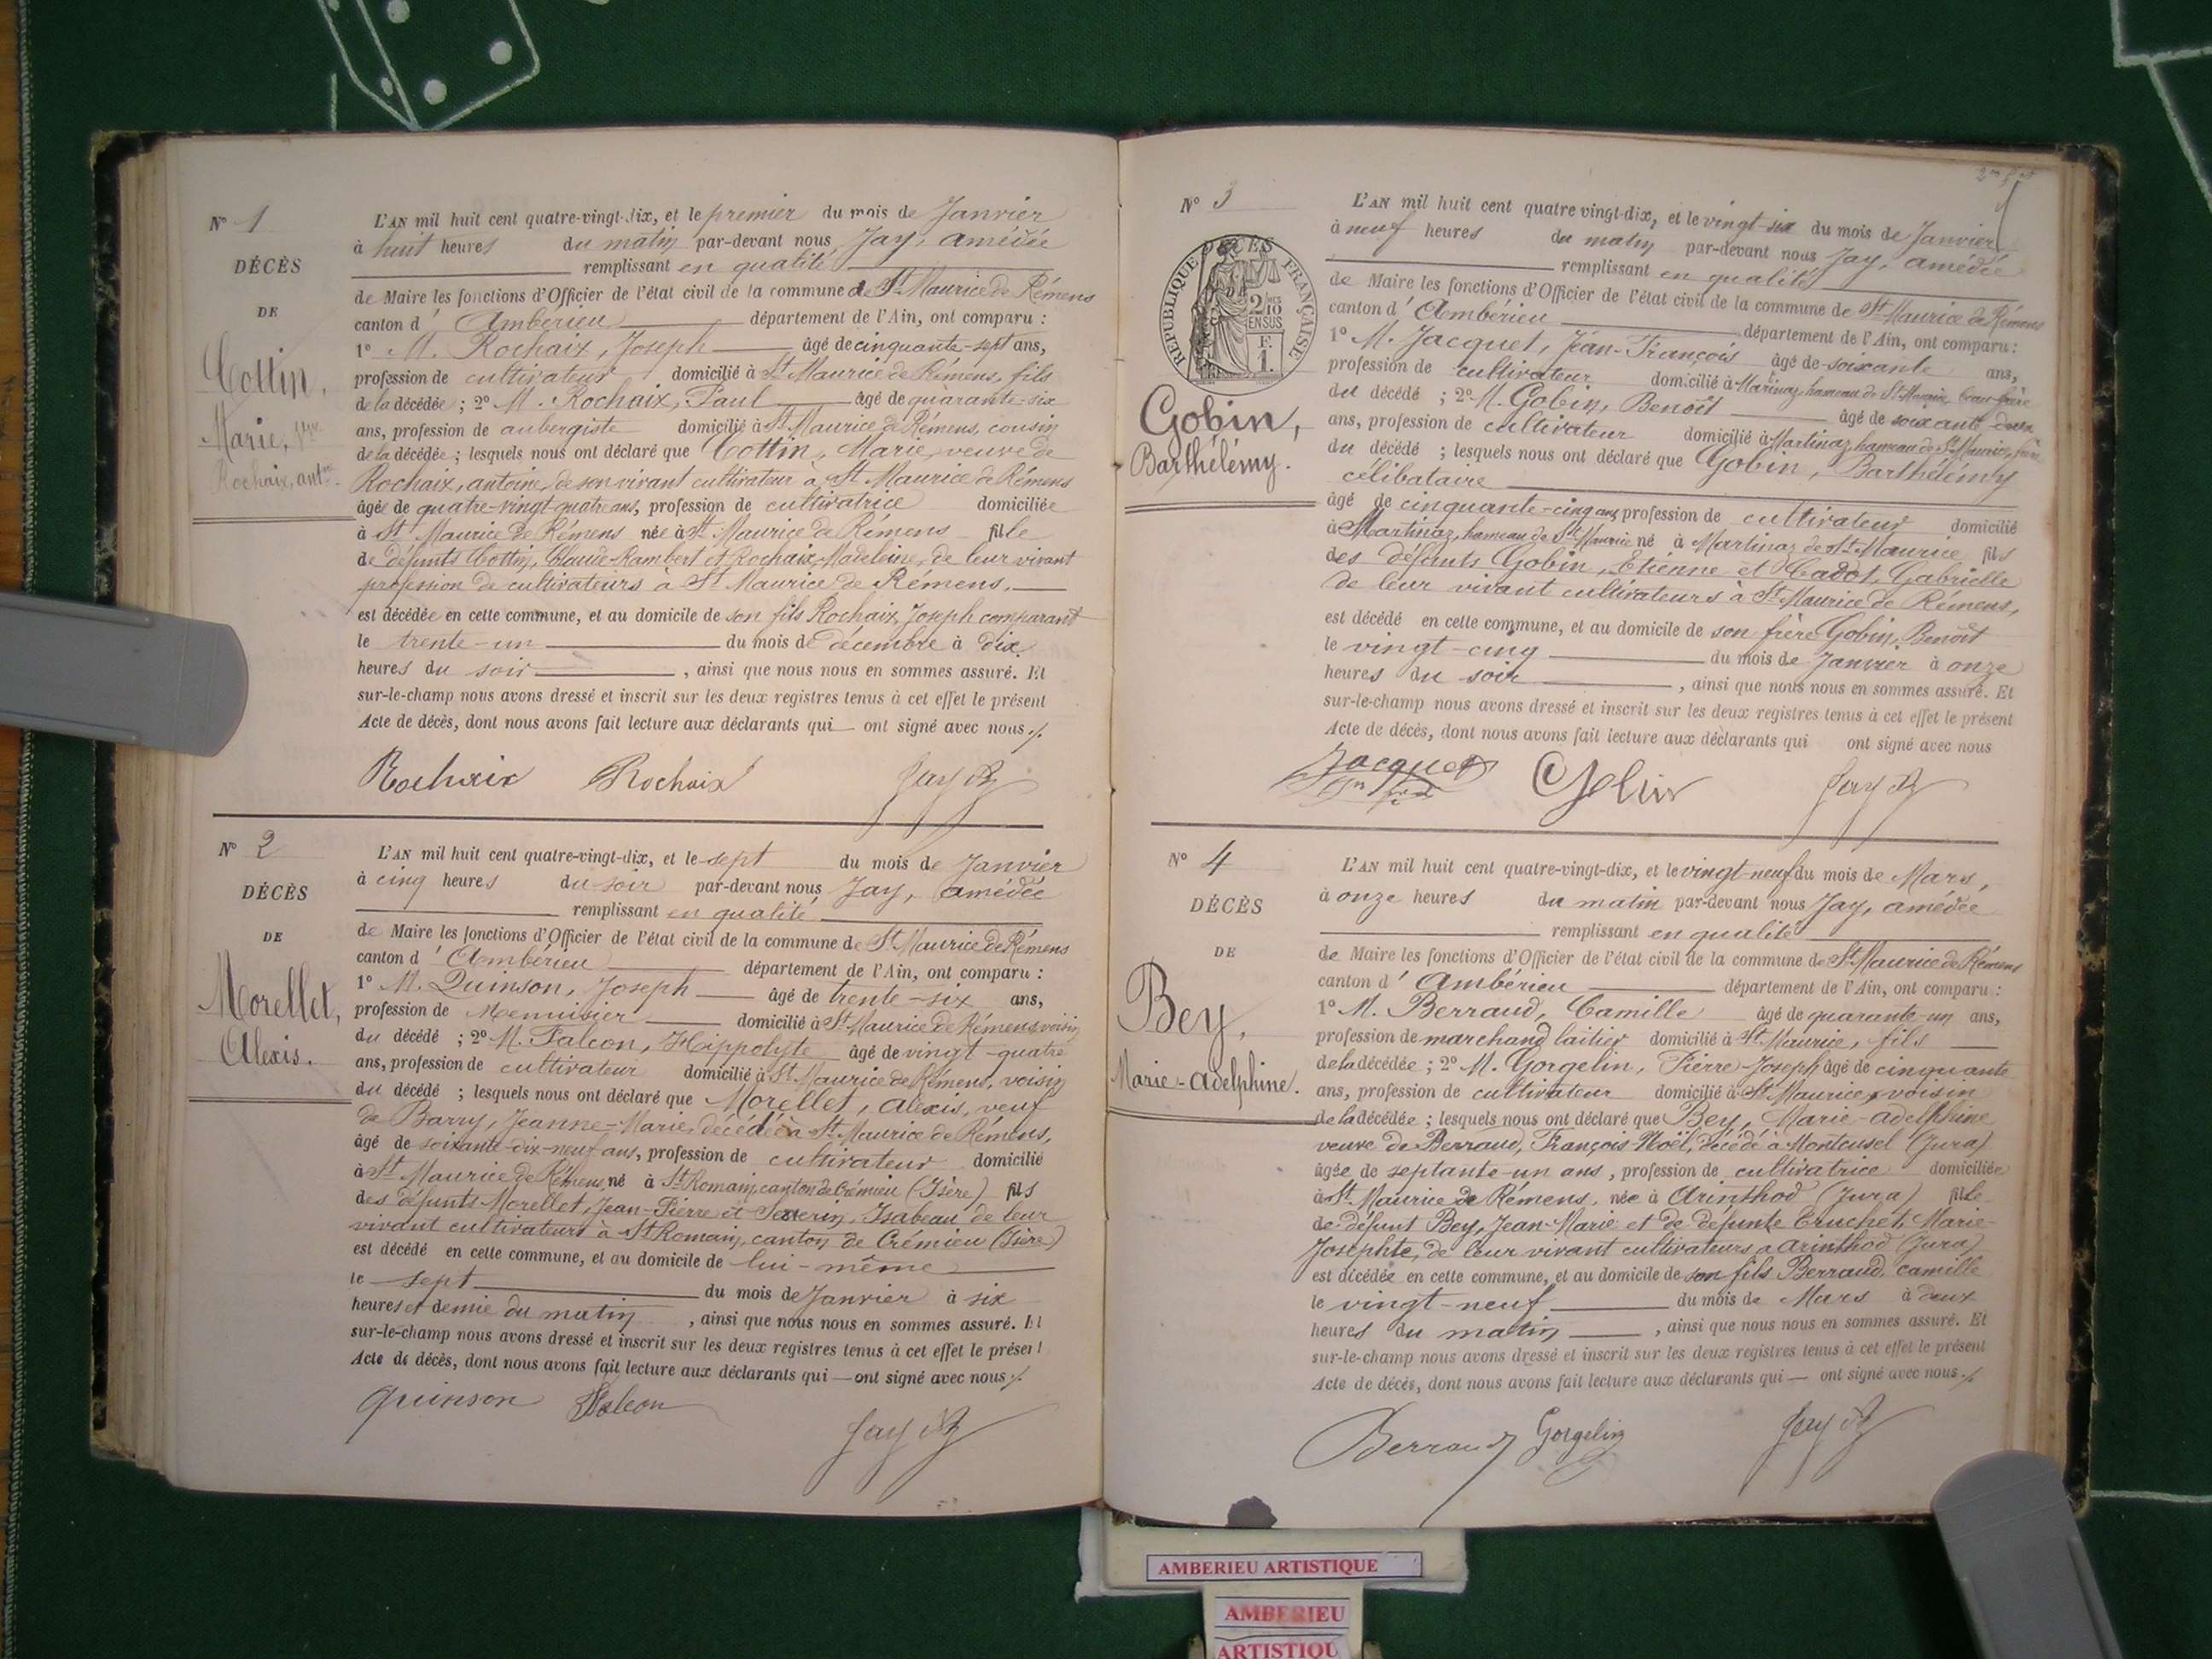 N° 1
DÉCÈS
DE
Cottin,
Marie, Vve
Rochaix, antne.
L'AN mil huit cent quatre-vingt-dix, et le premier du mois de Janvier
à huit heures du matin par-devant nous Jay, amédée
remplissant en qualité
de Maire les fonctions d'Officier de l'état civil de la commune de St Maurice de Rémens
canton d' Ambérieu département de l'Ain, ont comparu :
1° M. Rochaix, Joseph âgé de cinquante-sept ans,
profession de cultivateur domicilié à St Maurice de Rémens, fils
de la décédée ; 2° M. Rochaix, Paul âgé de quarante-six
ans, profession de aubergiste domicilié à St Maurice de Rémens, cousin
de la décédée ; lesquels nous ont déclaré que Cottin, Marie, veuve de
Rochaix, antoine, de son vivant cultivateur à St Maurice de Rémens
âgée de quatre-vingt-quatre ans, profession de cultivatrice domiciliée
à St Maurice de Rémens née à St Maurice de Rémens fille
de défunts Cottin, Claude-Rambert et Rochaix, Madeleine, de leur vivant
profession de cultivateurs à St Maurice de Rémens,
est décédée en cette commune, et au domicile de son fils Rochaix, Joseph comparant
le trente-un du mois de décembre à dix
heures du soir , ainsi que nous nous en sommes assuré. Et
sur-le-champ nous avons dressé et inscrit sur les deux registres tenus à cet effet le présent
Acte de décès, dont nous avons fait lecture aux déclarants qui ont signé avec nous ./.
Rochaix Rochaix Jay
N° 2
DÉCÈS
DE
Morellet,
Alexis.
L'AN mil huit cent quatre-vingt-dix, et le sept du mois de Janvier
à cinq heures du soir par-devant nous Jay, amédée
remplissant en qualité
de Maire les fonctions d'Officier de l'état civil de la commune de St Maurice de Rémens
canton d' Ambérieu département de l'Ain, ont comparu :
1° M. Quinson, Joseph âgé de trente-six ans,
profession de Menuisier domicilié à St Maurice de Rémens voisin
du décédé ; 2° M. Falcon, Hippolyte âgé de vingt-quatre
ans, profession de cultivateur domicilié à St Maurice de Rémens, voisin
du décédé ; lesquels nous ont déclaré que Morellet, alexis, veuf
de Barry, Jeanne-Marie, décédée à St Maurice de Rémens,
âgé de soixante-dix-neuf ans, profession de cultivateur domicilié
à St Maurice de Rémens né à St Romain, canton de Crémieu (Isère) fils
des défunts Morellet, Jean-Pierre et Isabeau de leur
vivant cultivateurs à St Romain, canton de Crémieu (Isère)
est décédé en cette commune, et au domicile de lui-même
le sept du mois de Janvier à six
heures et demie du matin , ainsi que nous nous en sommes assuré. Et
sur-le-champ nous avons dressé et inscrit sur les deux registres tenus à cet effet le présent
Acte de décès, dont nous avons fait lecture aux déclarants qui — ont signé avec nous ./.
Quinson Falcon
Jay
N° 3
RÉPUBLIQUE FRANÇAISE
DÉCÈS
DE
2/10 EN SUS
F. 1.
Gobin,
Barthélémy.
L'AN mil huit cent quatre vingt-dix, et le vingt-six du mois de Janvier
à neuf heures du matin par-devant nous Jay, amédée
remplissant en qualité
de Maire les fonctions d'Officier de l'état civil de la commune de St Maurice de Rémens
canton d' Ambérieu département de l'Ain, ont comparu :
1° M. Jacquet, Jean-François âgé de soixante ans,
profession de cultivateur domicilié à Martinaz, hameau de St Maurice, beau-frère
du décédé ; 2° M. Gobin, Benoît âgé de soixante-deux
ans, profession de cultivateur domicilié à Martinaz, hameau de St Maurice, frère
du décédé ; lesquels nous ont déclaré que Gobin, Barthélémy
célibataire
âgé de cinquante-cinq ans, profession de cultivateur domicilié
à Martinaz, hameau de St Maurice né à Martinaz de St Maurice fils
des défunts Gobin, Etienne et Cadot, Gabrielle
de leur vivant cultivateurs à St Maurice de Rémens,
est décédé en cette commune, et au domicile de son frère Gobin, Benoît
le vingt-cinq du mois de Janvier à onze
heures du soir , ainsi que nous nous en sommes assuré. Et
sur-le-champ nous avons dressé et inscrit sur les deux registres tenus à cet effet le présent
Acte de décès, dont nous avons fait lecture aux déclarants qui ont signé avec nous
Jacquet Gobin Jay
N° 4
DÉCÈS
DE
Bey,
Marie-adelphine.
L'AN mil huit cent quatre-vingt-dix, et le vingt-neuf du mois de Mars,
à onze heures du matin par-devant nous Jay, amédée
remplissant en qualité
de Maire les fonctions d'Officier de l'état civil de la commune de St Maurice de Rémens
canton d' Ambérieu département de l'Ain, ont comparu :
1° M. Berraud, Camille âgé de quarante-un ans,
profession de marchand laitier domicilié à St Maurice, fils
de la décédée ; 2° M. Gorgelin, Pierre-Joseph âgé de cinquante
ans, profession de cultivateur domicilié à St Maurice, voisin
de la décédée ; lesquels nous ont déclaré que Bey, Marie-adelphine
veuve de Berraud, François Noël, décédé à Monteusel (Jura)
âgée de septante-un ans, profession de cultivatrice domiciliée
à St Maurice de Rémens, née à Arinthod (Jura) fille
de défunt Bey, Jean-Marie et de défunte Truchet, Marie-
Josephte, de leur vivant cultivateurs à arinthod (Jura)
est décédée en cette commune, et au domicile de son fils Berraud, camille
le vingt-neuf du mois de Mars à deux
heures du matin , ainsi que nous nous en sommes assuré. Et
sur-le-champ nous avons dressé et inscrit sur les deux registres tenus à cet effet le présent
Acte de décès, dont nous avons fait lecture aux déclarants qui — ont signé avec nous ./.
Berraud Gorgelin Jay
AMBERIEU ARTISTIQUE
AMBERIEU
ARTISTIQU